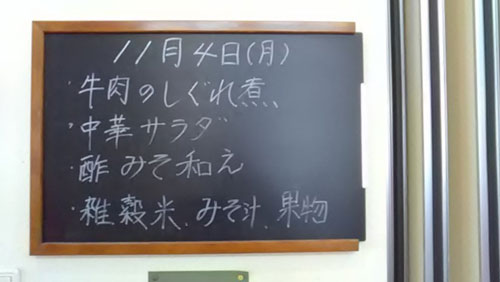 11月4日(月)
・牛肉のしぐれ煮
・中華サラダ
・酢みそ和え
・雑穀米、みそ汁、果物